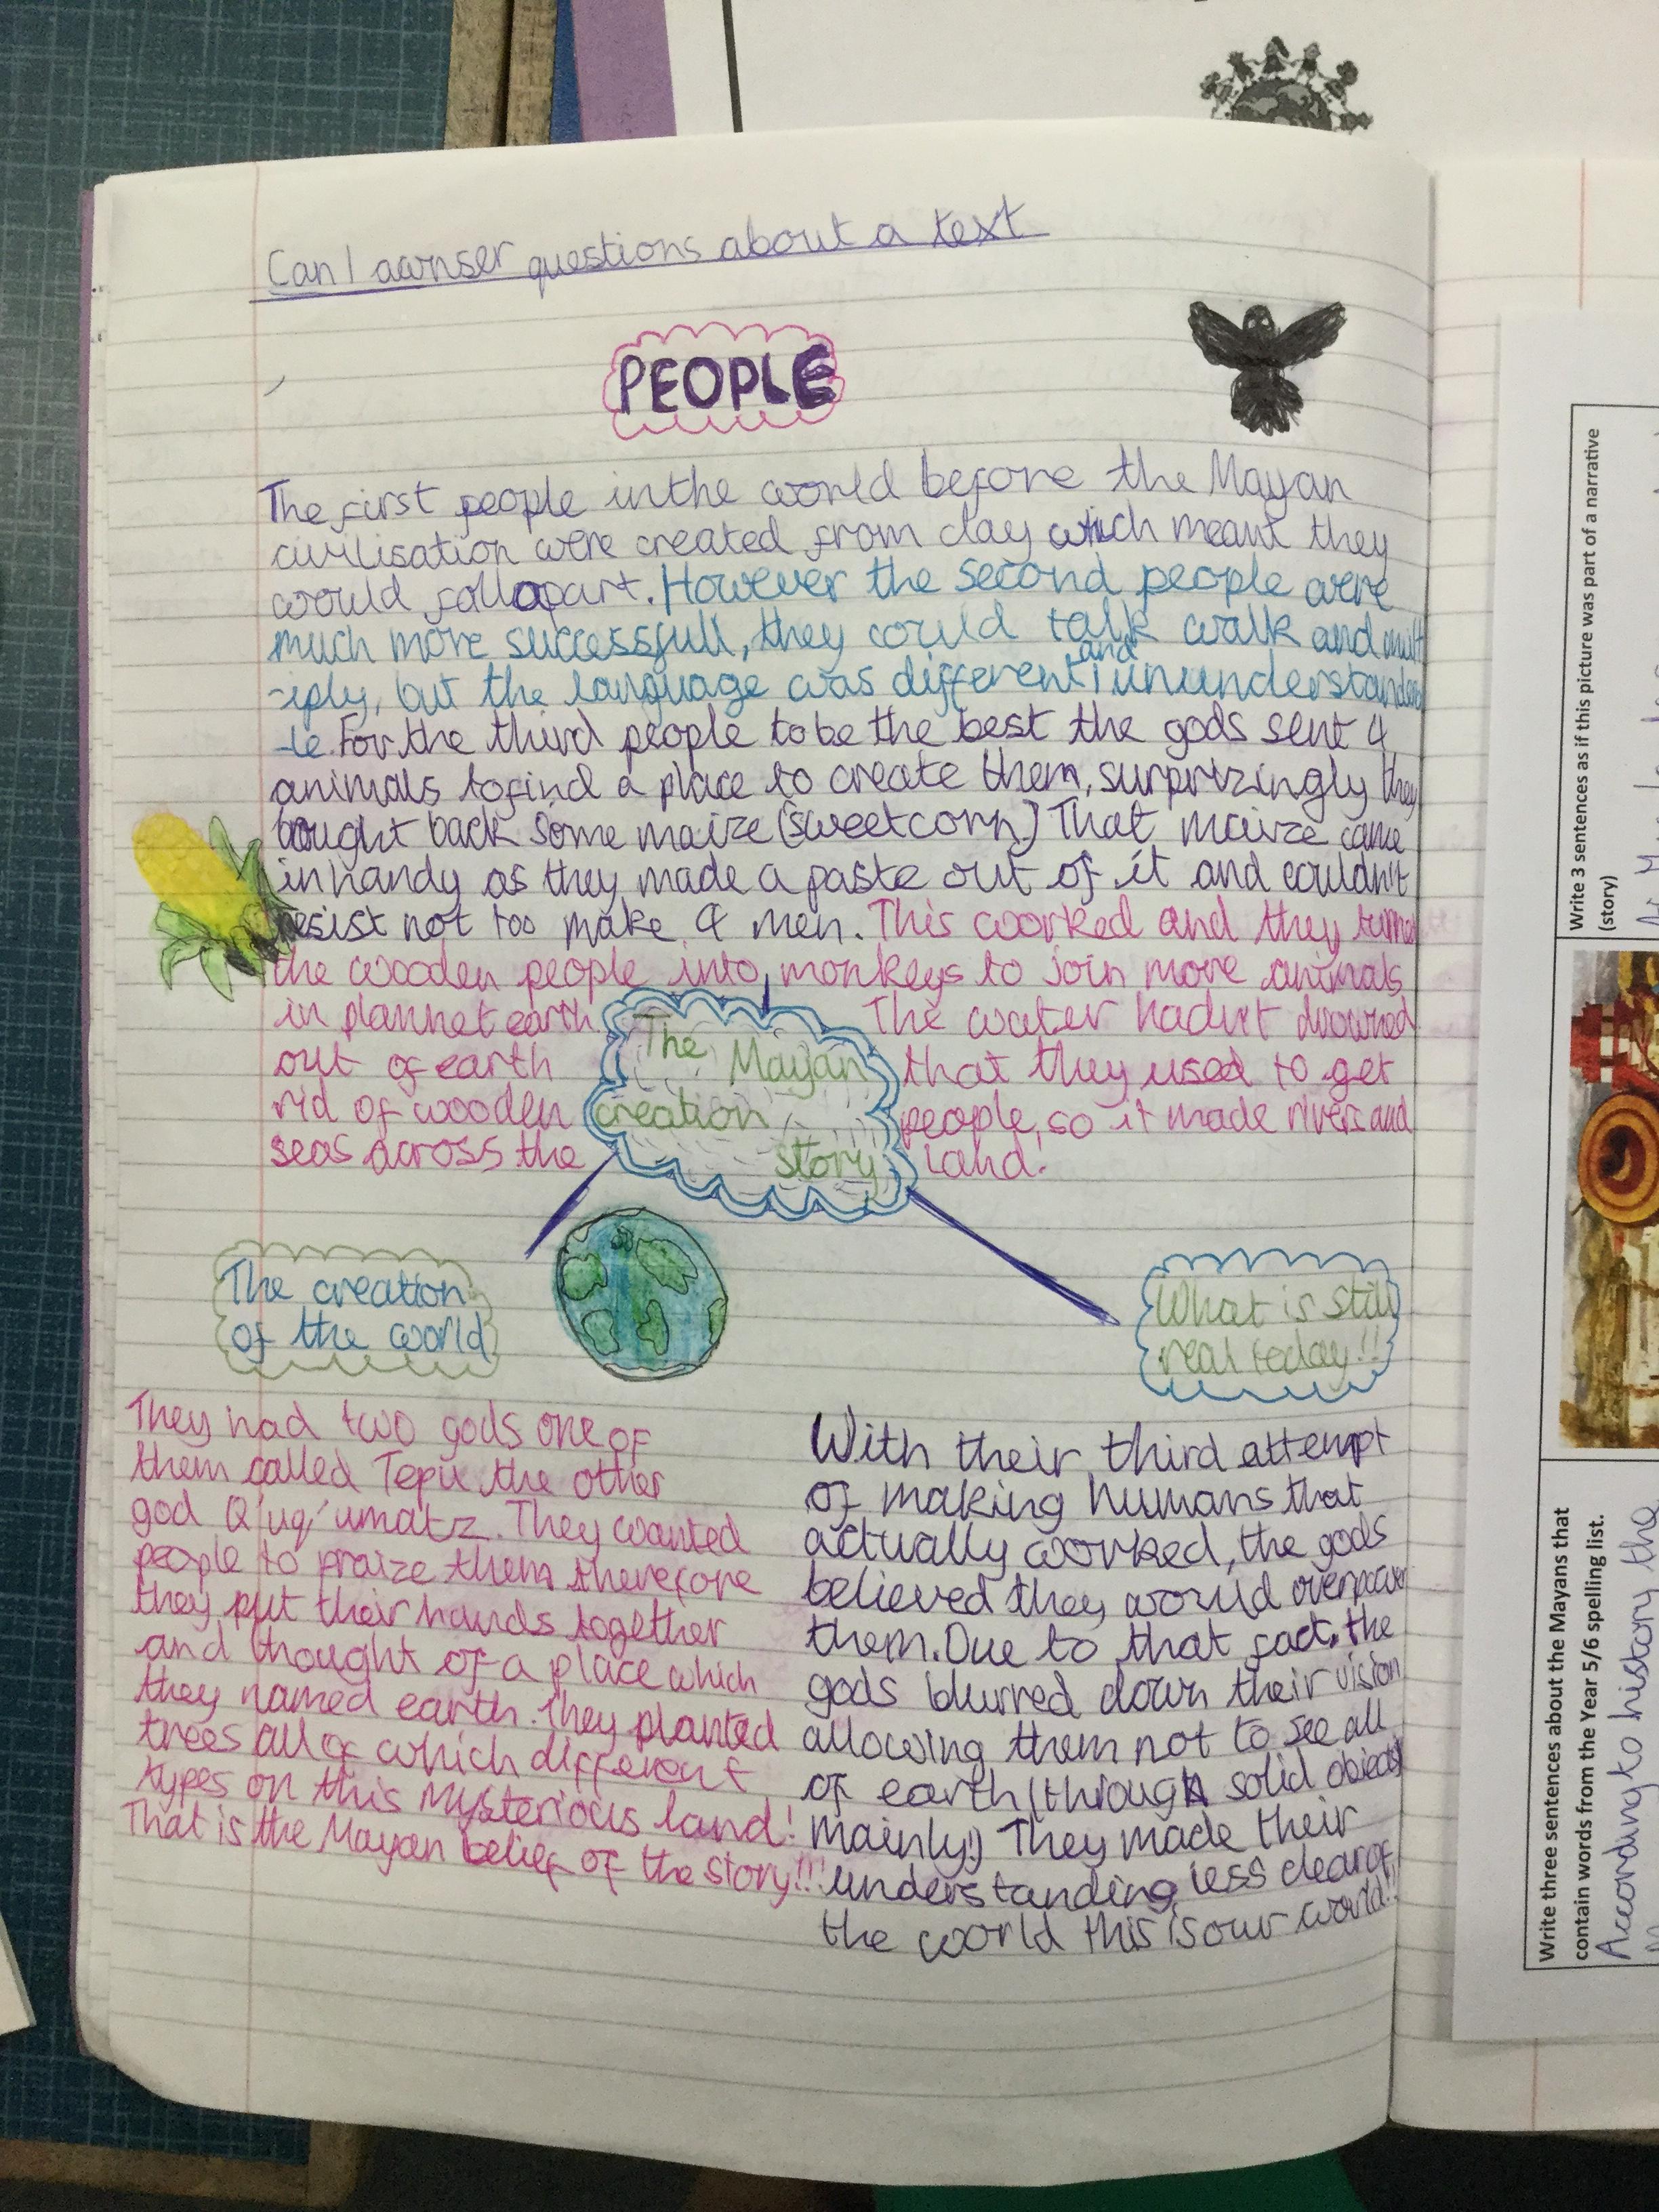 Can I aarnser questions about a text
PEOPLE
The first people in the world before the Mayan
civilisation were created from clay which meant they
would fall apart. However the second people were
much more successfull, they could talk walk and mult
-iply, but the language was different and ununderstandab
-le. For the third people to be the best the gods sent 4
animals to find a place to create them, surprizingly they
bought back some maize (sweetcorn) That maize came
in handy as they made a paste out of it and couldn't
resist not too make 4 men. This worked and they turned
the wooden people into monkeys to join more animals
in plannet earth. The water hadn't drowned
out of earth that they used to get
rid of wooden people, so it made rivers and
seas across the land.
The Mayan
creation
story
The creation
of the world
They had two gods one of
them called Tepu the other
god Q'uq'umatz. They wanted
people to praize them therefore
they put their hands together
and thought of a place which
they named earth. They planted
trees all of which different
types on this mysterious land!
That is the Mayan belief of the story!!!
What is still
real today!!
With their third attempt
of making humans that
actually worked, the gods
believed they would overpower
them. Due to that fact, the
gods blurred down their vision
allowing them not to see all
of earth (through solid objects
mainly!) They made their
understanding less clear of
the world this is our world!!
Write 3 sentences as if this picture was part of a narrative
(story)
Write three sentences about the Mayans that
contain words from the Year 5/6 spelling list.
According to history the